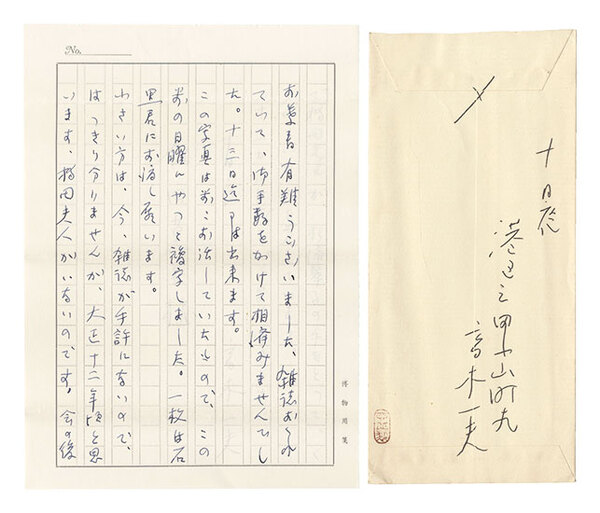 No.
お葉書有難うございました、雑誌おくれ
ていて、御手数をかけて相済みませんでし
た。十三日迄には出来ます。
この写真は前にお話していたもので、この
前の日曜にやつて複写しました。一枚は石
黒君にお渡し願います。
小さい方は、今、雑誌が手許にないので、
はつきり分りませんが、大正十二年頃と思
います、夫人がいないのです。会の後
博物用箋
〆
十日夜
港区三田小山町九
高木一夫